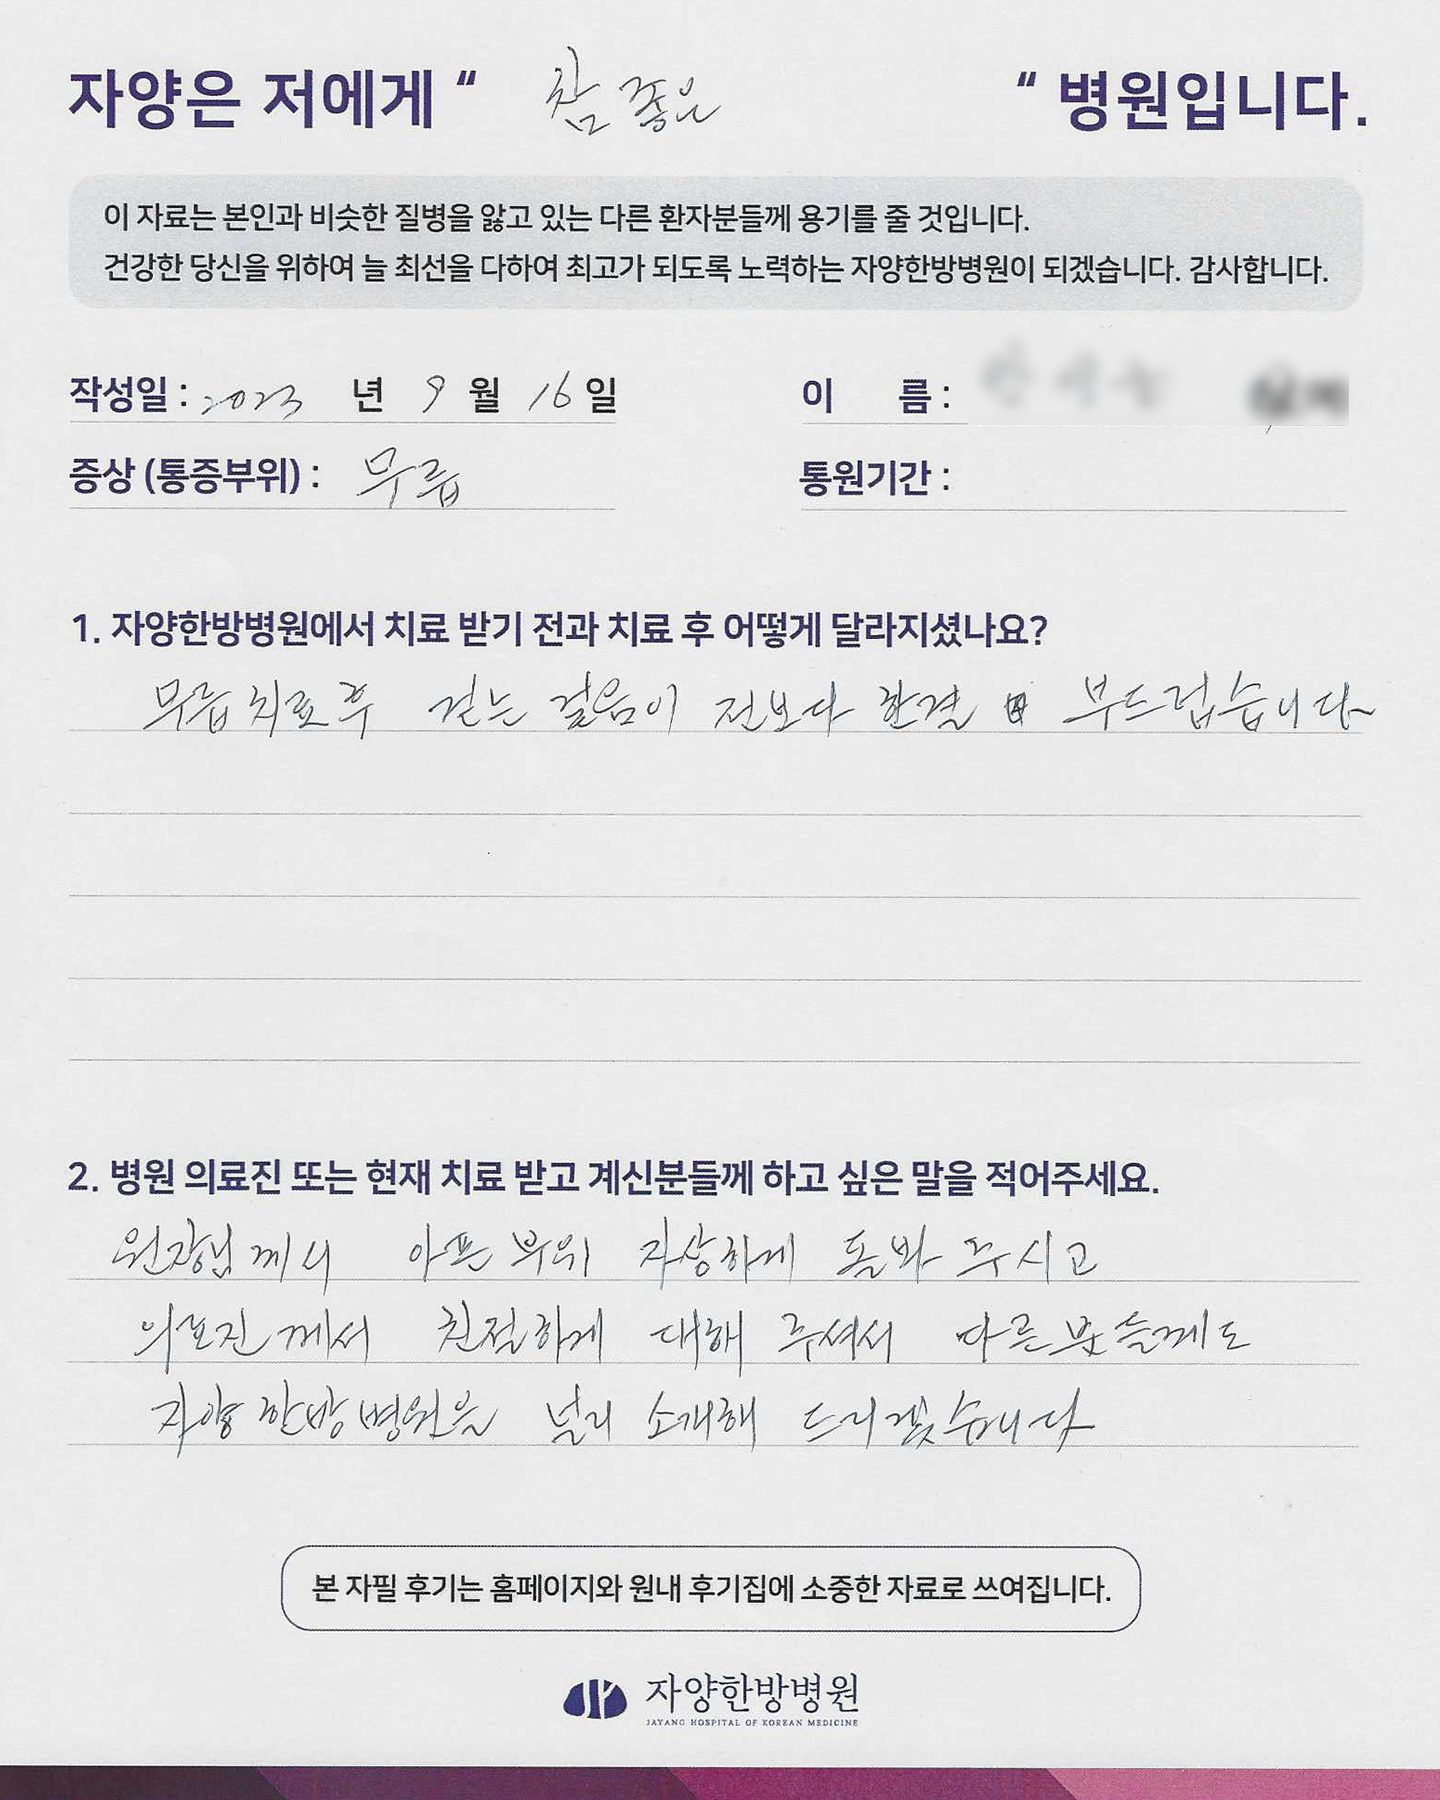 자양은 저에게 “ 참 좋은 “ 병원입니다.
이 자료는 본인과 비슷한 질병을 앓고 있는 다른 환자분들께 용기를 줄 것입니다.
건강한 당신을 위하여 늘 최선을 다하여 최고가 되도록 노력하는 자양한방병원이 되겠습니다. 감사합니다.
작성일 : 2023 년 9 월 16 일 이 름 :
증상 (통증부위) : 무릎 통원기간 :
1. 자양한방병원에서 치료 받기 전과 치료 후 어떻게 달라지셨나요?
무릎 치료 후 걷는 걸음이 전보다 한결 부드럽습니다~
2. 병원 의료진 또는 현재 치료 받고 계신분들께 하고 싶은 말을 적어주세요.
원장님께서 아픈 부위 자상하게 돌봐 주시고
의료진께서 친절하게 대해 주셔서 다른 분들께도
자양한방병원을 널리 소개해 드리겠습니다
본 자필 후기는 홈페이지와 원내 후기집에 소중한 자료로 쓰여집니다.
자양한방병원
JAYANG HOSPITAL OF KOREAN MEDICINE